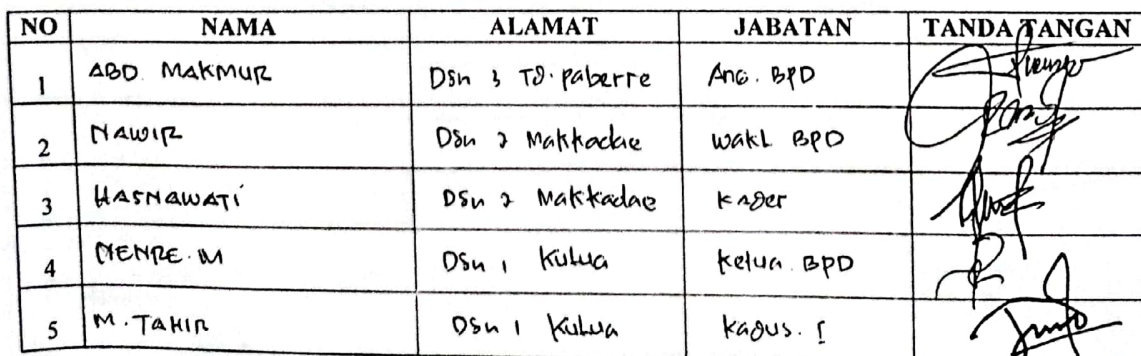 NO NAMA ALAMAT JABATAN TANDA TANGAN
1 ABD. MAKMUR Dsn 3 Td. paberre Ang. BPD
2 NAWIR Dsn 2 Makkadae wakl BPD
3 HASNAWATi DSn 2 Makkadae kader
4 MENRE. M DSn 1 Kulua ketua BPD
5 M. TAHIR DSn 1 Kulua kadus. I